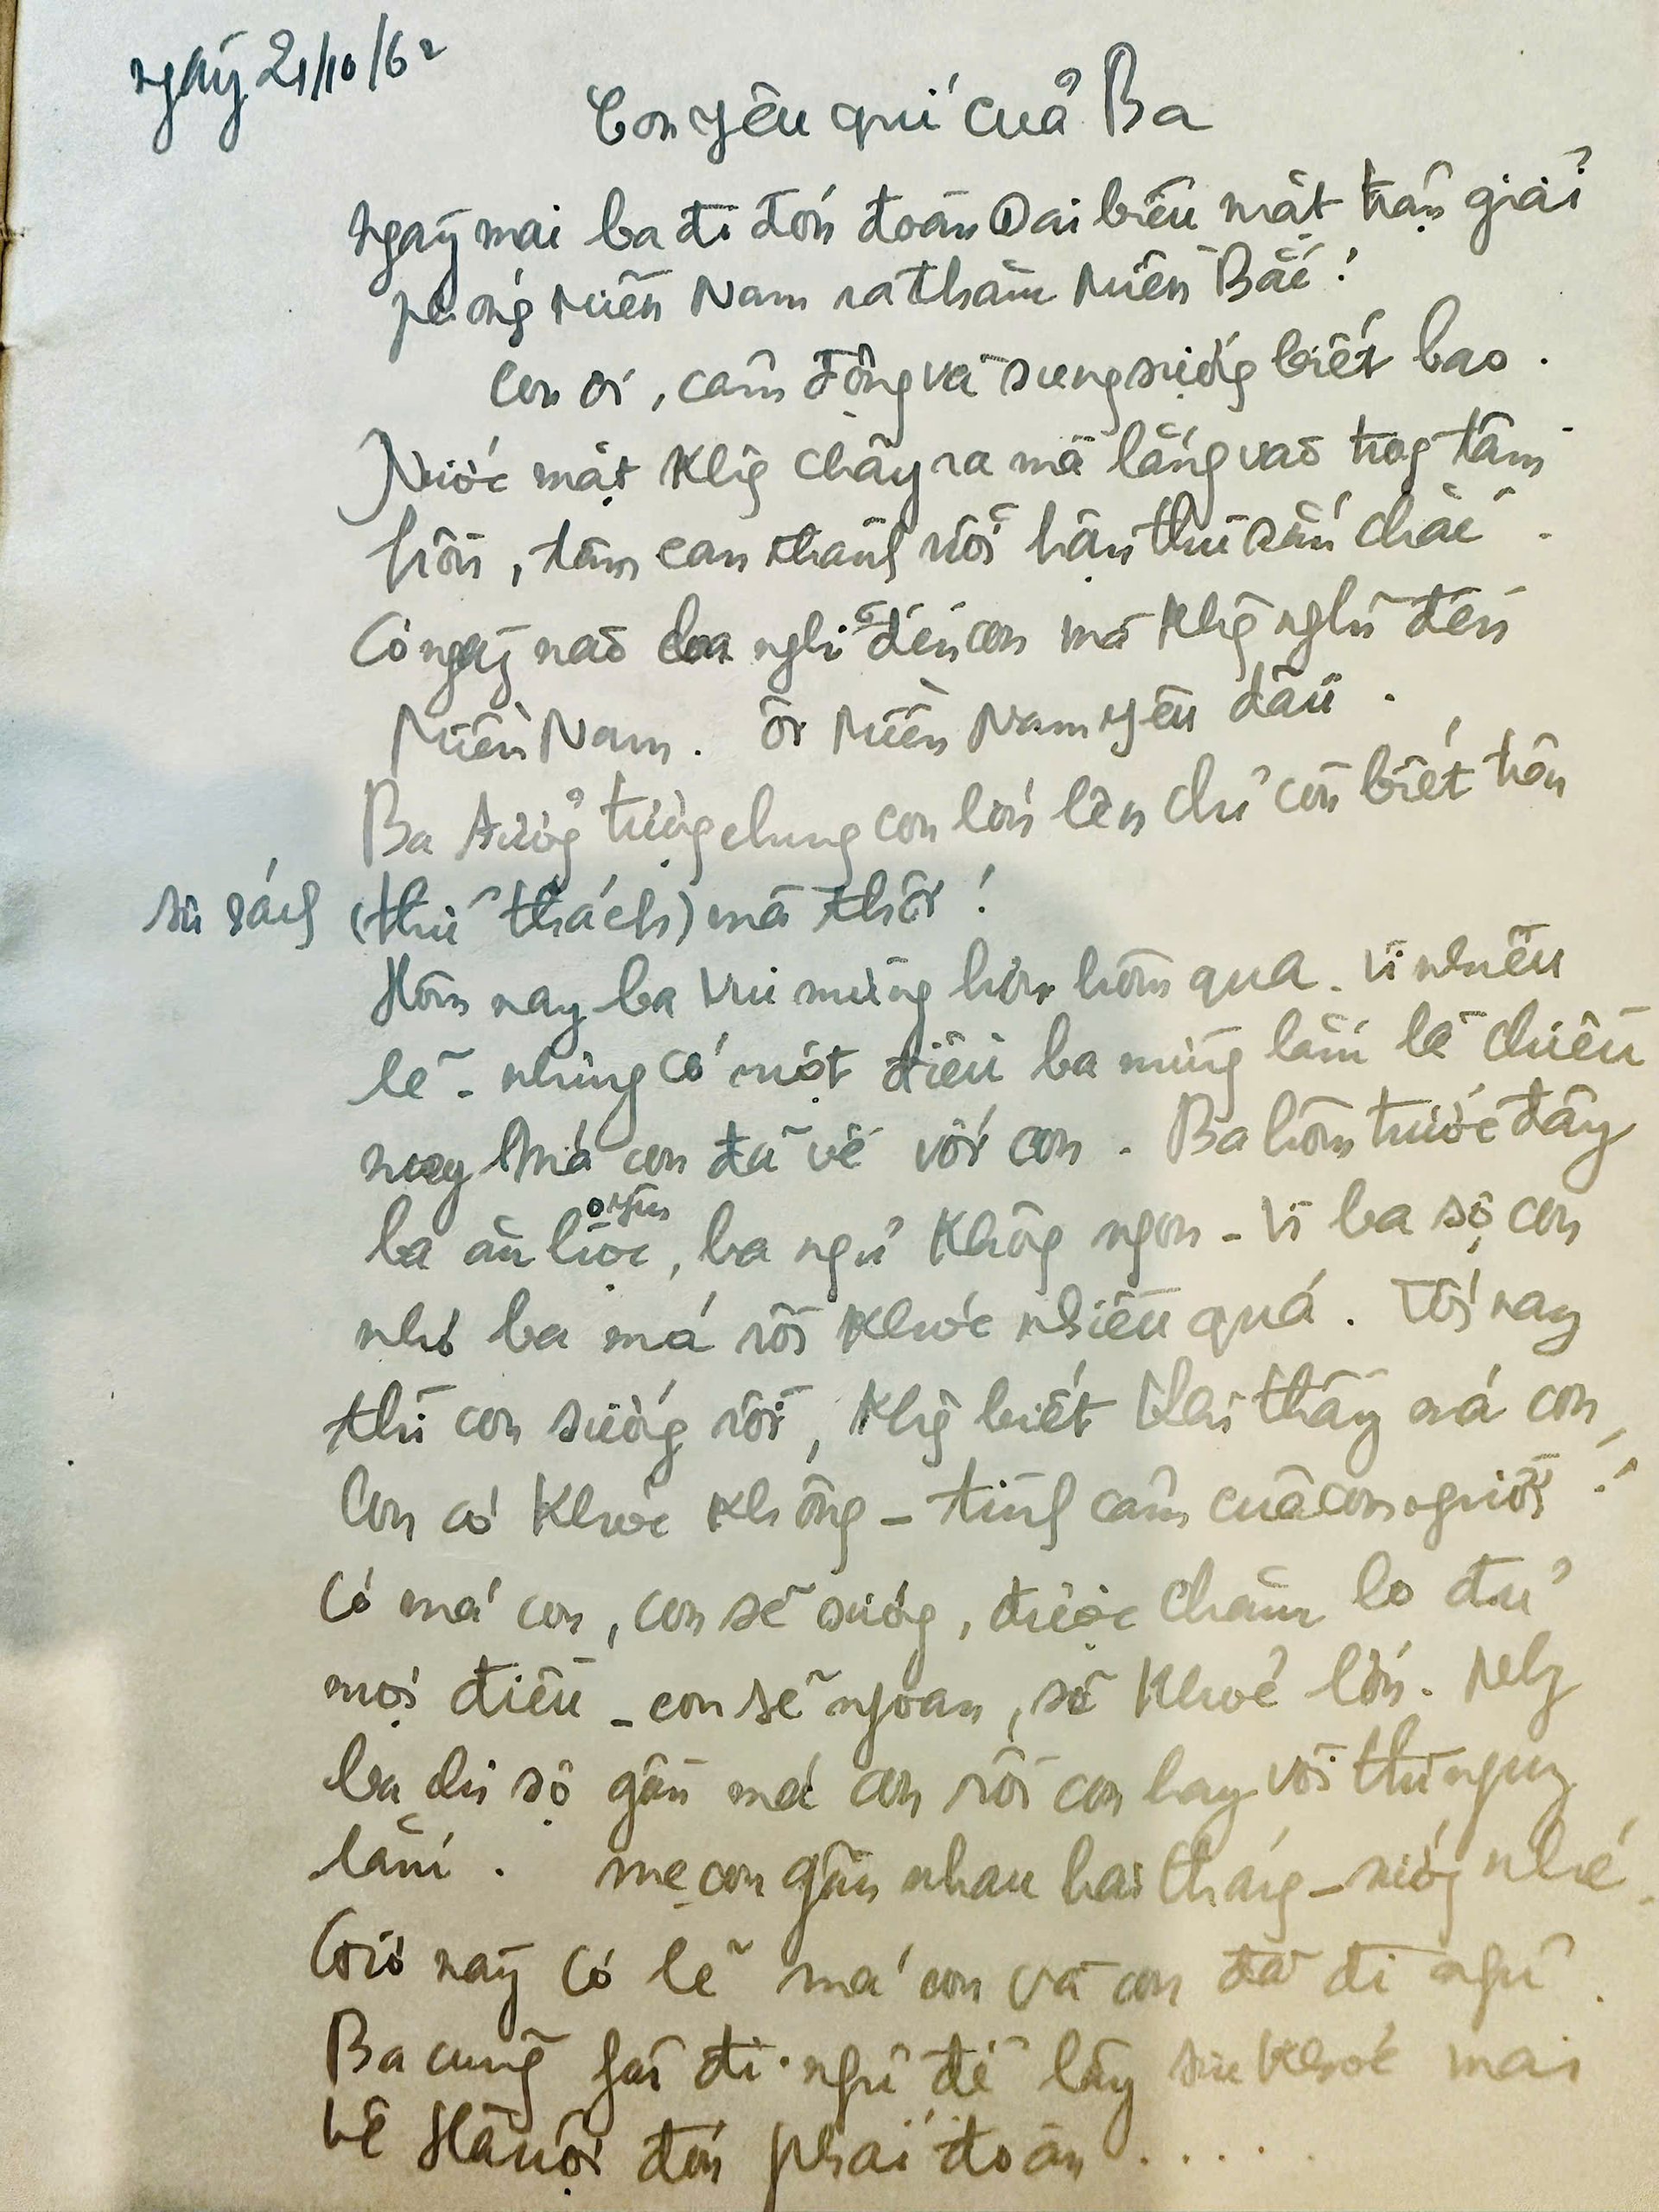 ngày 21/10/62
Con yêu quí của Ba
Ngày mai ba đi đón đoàn Đại biểu mặt trận giải
phóng Miền Nam ra thăm Miền Bắc!
Con ơi, cảm động và sung sướng biết bao.
Nước mắt khg chảy ra mà lắng vào trog tâm
hồn, tâm can thành nỗi hận thù sâu sắc.
Có ngày nào ba nghĩ đến con mà khg nghĩ đến
Miền Nam. Ôi Miền Nam yêu dấu.
Ba tưởg tượg chung con lớn lên chỉ còn biết trên
sử sách (thử thách) mà thôi!
Hôm nay ba vui mừng hơn hôm qua. Vì nhiều
lẽ - nhưng có một điều ba mừng lắm là chiều
nay Má con đã về với con. Ba hôm trước đây
ba ăn khôg yên
được, ba ngủ khôg ngon - Vì ba sợ con
nhớ ba má rồi khóc nhiều quá. Tối nay
thì con sướg rồi, khg biết khi thấy má con,
Con có khóc không - tình cảm của con người!
Có má con, con sẽ sướg, được chăm lo đủ
mọi điều - con sẽ ngoan, sẽ khoẻ lớn. Nhg
ba chỉ sợ gần má con rồi con hay vòi thì nguy
lắm. mẹ con gần nhau hai tháng - sướg nhé.
Giờ này có lẽ má con và con đã đi ngủ.
Ba cũng fải đi ngủ để lấy sức khoẻ mai
về Hà Nội đón phái đoàn.....